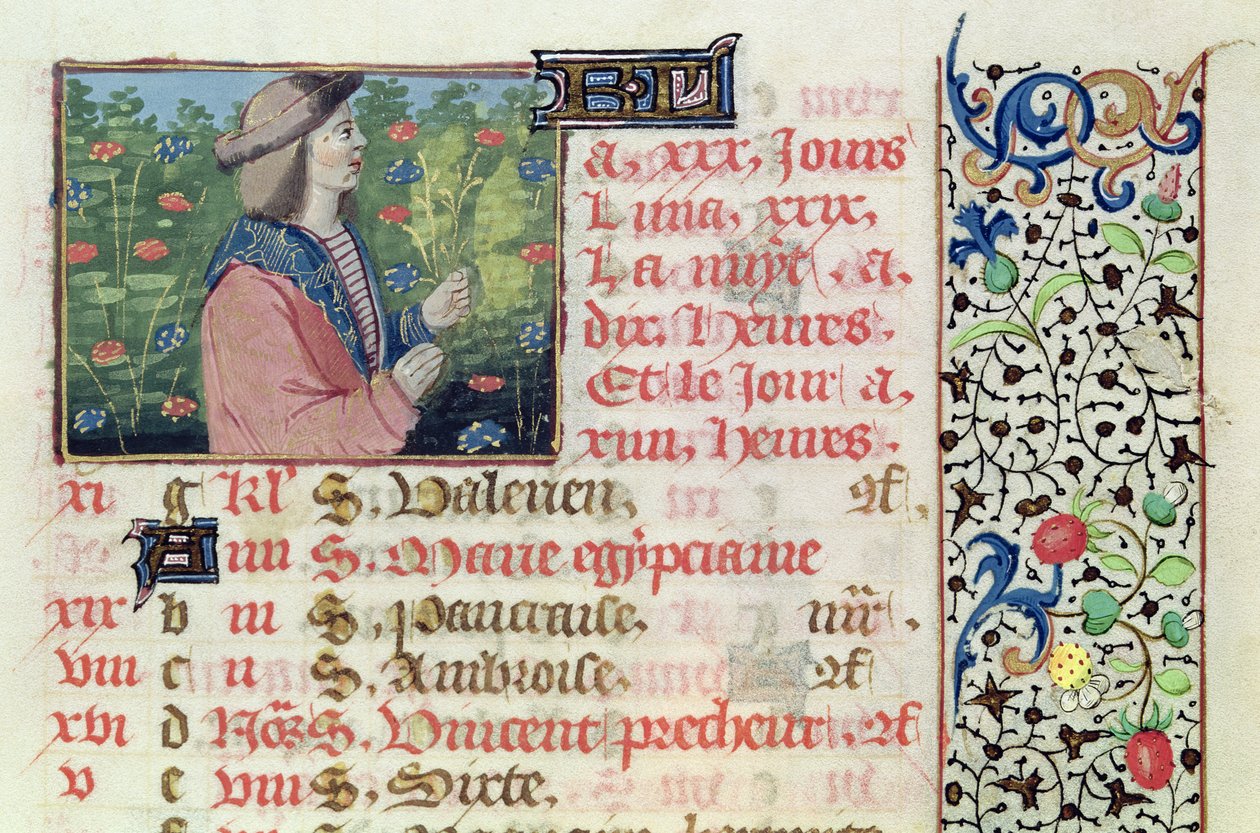 AVRIL
a, xxx, Jours
Luna, xxix,
La nuyt, a,
dix Heures.
Et le Jour a,
xiiii, Heures.
xi g kl' S. Valerien,
A iiii S. Marie egipcianne
xix b iii S. pancraise,
viii c ii S. Ambroise.
xvi d Noš S. Vincent precheur.
v e viii S. Sixte,
f S.